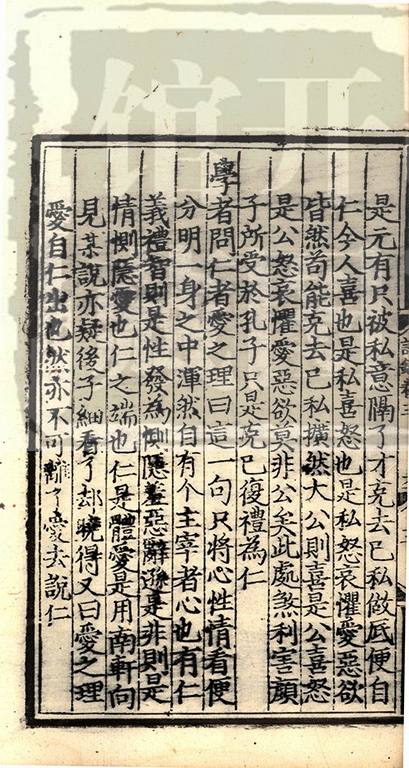 是元有只被私意隔了才克去己私做底便自
仁今人喜也是私喜怒也是私怒哀懼愛惡欲
皆然苟能克去己私擴然大公則喜是公喜怒
是公怒哀懼愛惡欲莫非公矣此處煞利害顏
子所受於孔子只是克己復禮為仁
學者問仁者愛之理曰這一句只將心性情看便
分明一身之中渾然自有个主宰者心也有仁
義禮智則是性發為惻隱羞惡辭遜是非則是
情惻隱愛也仁之端也仁是體愛是用南軒向
見某說亦疑後子細看了却曉得又曰愛之理
愛自仁出也然亦不可離了愛去說仁